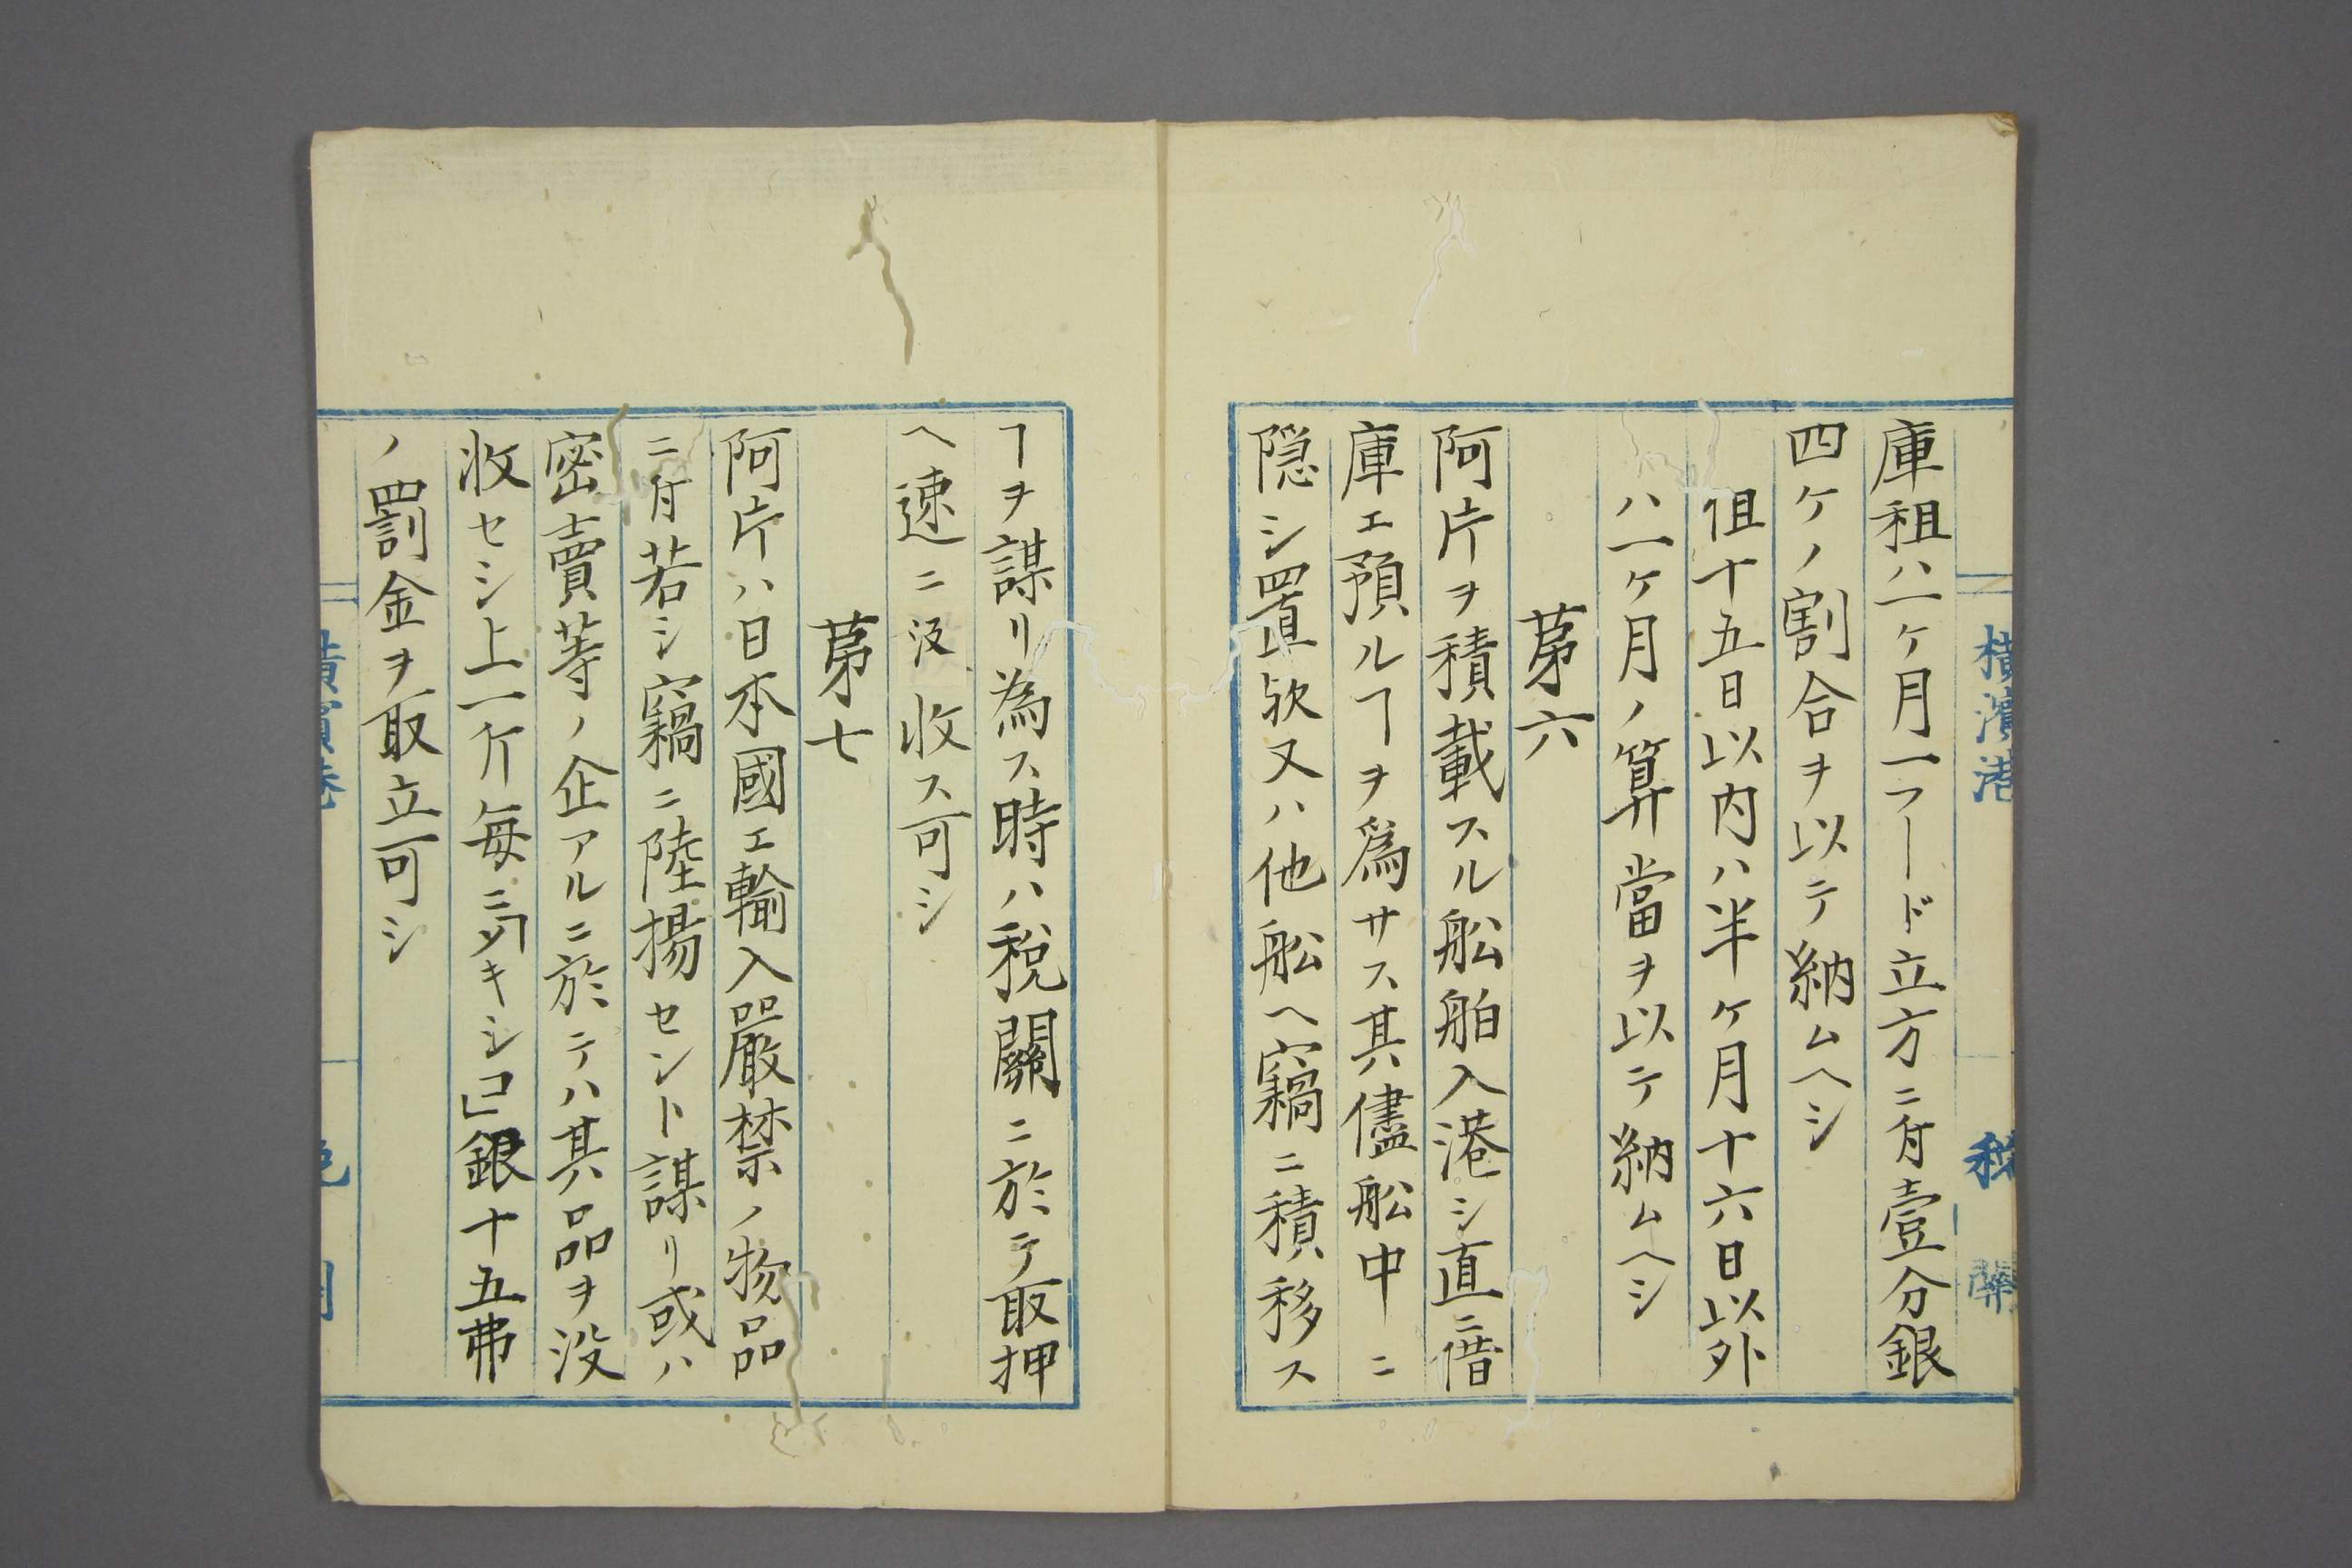 横濱港 税關
庫租ハ一ケ月一フード立方ニ付壹分銀
四ケノ割合ヲ以テ納ムヘシ
但十五日以内ハ半ケ月十六日以外
ハ一ケ月ノ算當ヲ以テ納ムヘシ
苐六
阿片ヲ積載スル舩舶入港シ直ニ借
庫エ預ルヿヲ爲サス其儘舩中ニ
隠シ置欤又ハ他舩ヘ竊ニ積移ス
ヿヲ謀リ為ス時ハ税關ニ於テ取押
ヘ速ニ沒收ス可シ
苐七
阿片ハ日本國エ輸入嚴禁ノ物品
ニ付若シ竊ニ陸揚セント謀リ或ハ
密賣等ノ企アルニ於テハ其品ヲ没
收セシ上一斤毎ニ「メキシコ」銀十五弗
ノ罰金ヲ取立可シ
横濱港